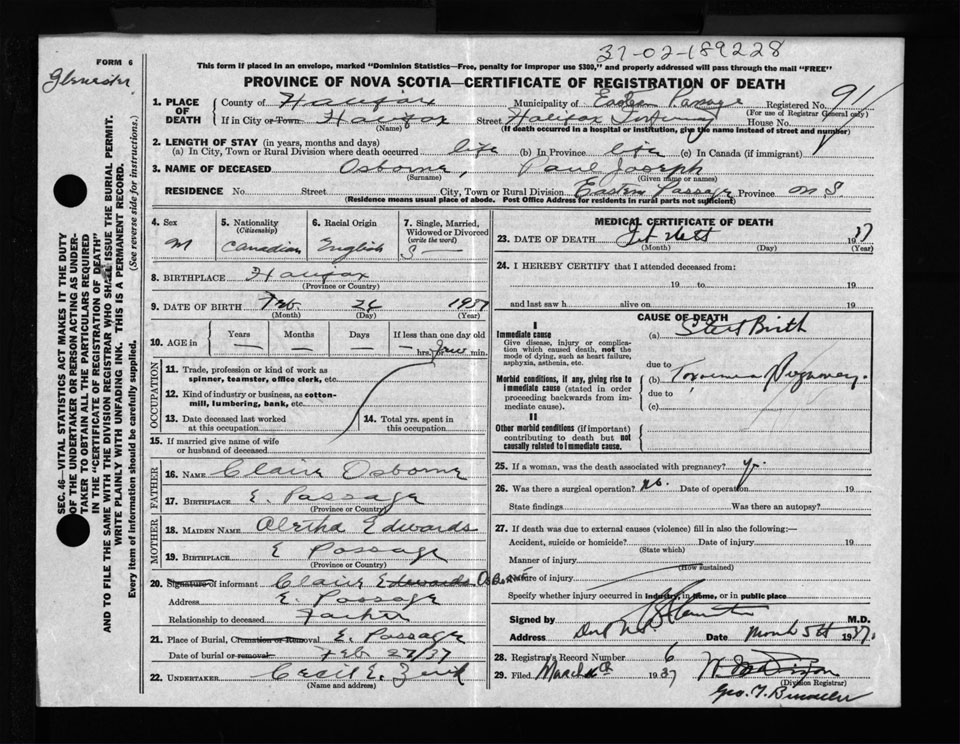 37-02-189228
FORM 6
This form if placed in an envelope, marked "Dominion Statistics—Free, penalty for improper use $300," and properly addressed will pass through the mail "FREE"
PROVINCE OF NOVA SCOTIA—CERTIFICATE OF REGISTRATION OF DEATH
1. PLACE OF DEATH
County of Halifax Municipality of Eastern Passage Registered No. 91
(For use of Registrar General only)
If in City or Town Halifax Street Halifax Infirmary House No.
(Name) (If death occurred in a hospital or institution, give the name instead of street and number)
2. LENGTH OF STAY (in years, months and days)
(a) In City, Town or Rural Division where death occurred life (b) In Province life (c) In Canada (if immigrant)
3. NAME OF DECEASED Osborne, Paul Joseph
(Surname) (Given name or names)
RESIDENCE No. Street City, Town or Rural Division Eastern Passage Province N S
(Residence means usual place of abode. Post Office Address for residents in rural parts not sufficient)
4. Sex M
5. Nationality (Citizenship) Canadian
6. Racial Origin English
7. Single, Married, Widowed or Divorced (write the word) S
8. BIRTHPLACE Halifax
(Province or Country)
9. DATE OF BIRTH Feb. 26 1937
(Month) (Day) (Year)
10. AGE in Years Months Days If less than one day old
hrs. min.
OCCUPATION
11. Trade, profession or kind of work as spinner, teamster, office clerk, etc.
12. Kind of industry or business, as cotton-mill, lumbering, bank, etc.
13. Date deceased last worked at this occupation
14. Total yrs. spent in this occupation
15. If married give name of wife or husband of deceased
FATHER
16. NAME Claire Osborne
17. BIRTHPLACE E. Passage
(Province or Country)
MOTHER
18. MAIDEN NAME Aletha Edwards
19. BIRTHPLACE E Passage
(Province or Country)
20. Signature of informant Claire Edwards Osborne
Address E. Passage
Relationship to deceased Father
21. Place of Burial, Cremation or Removal E. Passage
Date of burial or removal Feb 27/37
22. UNDERTAKER Cecil E.
(Name and address)
MEDICAL CERTIFICATE OF DEATH
23. DATE OF DEATH 1937
(Month) (Day) (Year)
24. I HEREBY CERTIFY that I attended deceased from:
19 to 19
and last saw h alive on 19
CAUSE OF DEATH
I
Immediate cause
Give disease, injury or complication which caused death, not the mode of dying, such as heart failure, asphyxia, asthenia, etc.
(a) Still Birth
due to
Morbid conditions, if any, giving rise to immediate cause (stated in order proceeding backwards from immediate cause).
(b) Toxaemia Pregnancy
due to
(c)
II
Other morbid conditions (if important) contributing to death but not causally related to immediate cause.
25. If a woman, was the death associated with pregnancy?
26. Was there a surgical operation? no. Date of operation 19
State findings Was there an autopsy?
27. If death was due to external causes (violence) fill in also the following:—
Accident, suicide or homicide? Date of injury 19
(State which)
Manner of injury
(How sustained)
Nature of injury
Specify whether injury occurred in industry, in home, or in public place
Signed by M.D.
Address Date March 5th 1937.
28. Registrar's Record Number 6
29. Filed March 1937
(Division Registrar)
SEC. 46—VITAL STATISTICS ACT MAKES IT THE DUTY
OF THE UNDERTAKER OR PERSON ACTING AS UNDER-
TAKER TO OBTAIN ALL THE PARTICULARS REQUIRED
IN THE "CERTIFICATE OF REGISTRATION OF DEATH"
AND TO FILE THE SAME WITH THE DIVISION REGISTRAR WHO SHALL ISSUE THE BURIAL PERMIT.
WRITE PLAINLY WITH UNFADING INK. THIS IS A PERMANENT RECORD.
Every item of information should be carefully supplied. (See reverse side for instructions.)